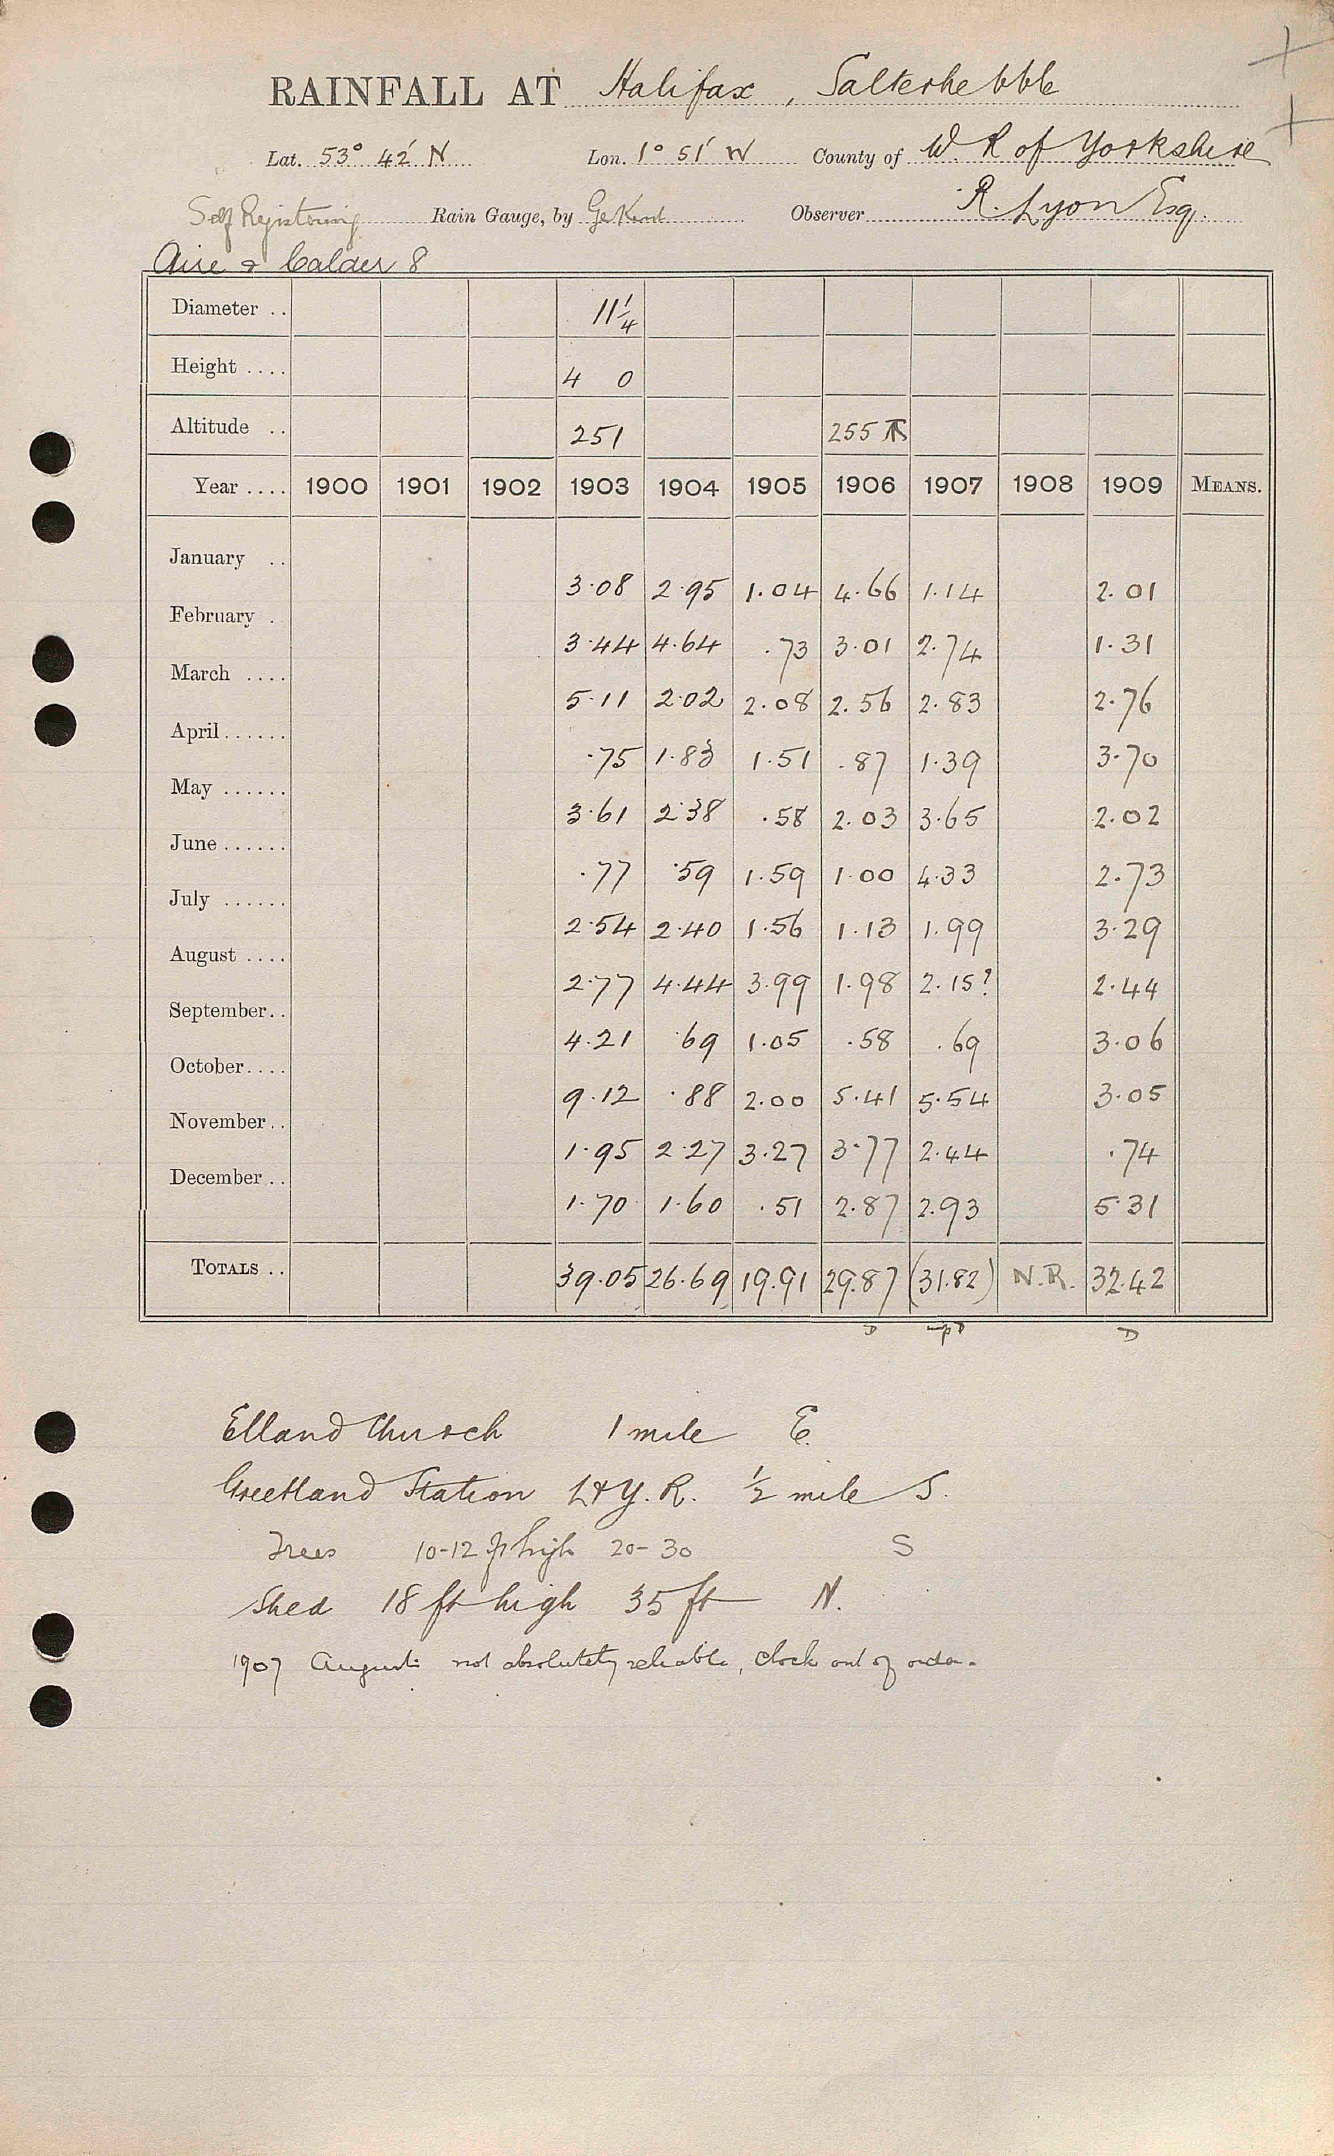 RAINFALL AT Halifax, Salterhebble
Lat. 53° 42' N Lon. 1° 51' W County of W. R of Yorkshire
Self Registering Rain Gauge, by G. Kent Observer R. Lyon Esq.
Aire & Calder 8
Diameter .. 11 1/4
Height .... 4 0
Altitude .. 251 255
Year .... 1900 1901 1902 1903 1904 1905 1906 1907 1908 1909 MEANS.
January .. 3.08 2.95 1.04 4.66 1.14 2.01
February . 3.44 4.64 .73 3.01 2.74 1.31
March .... 5.11 2.02 2.08 2.56 2.83 2.76
April ...... .75 1.83 1.51 .87 1.39 3.70
May ...... 3.61 2.38 .58 2.03 3.65 2.02
June ...... .77 .59 1.59 1.00 4.33 2.73
July ...... 2.54 2.40 1.56 1.13 1.99 3.29
August .... 2.77 4.44 3.99 1.98 2.15? 2.44
September.. 4.21 .69 1.05 .58 .69 3.06
October.... 9.12 .88 2.00 5.41 5.54 3.05
November.. 1.95 2.27 3.27 3.77 2.44 .74
December.. 1.70 1.60 .51 2.87 2.93 5.31
TOTALS .. 39.05 26.69 19.91 29.87 (31.82) N.R. 32.42
Elland Church 1 mile E.
Greetland Station L & Y. R. 1/2 mile S.
Trees 10-12 ft high 20-30 S
Shed 18 ft high 35 ft N.
1907 August not absolutely reliable, clock out of order.